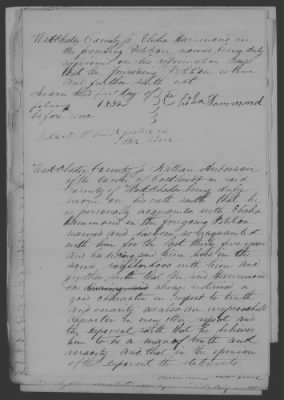 Westchester County ss Elisha Hammond in
the preceding Petition named being duly
on his information Says
that the preceding Petition is true
and further saith not
Sworn this first day of
February 1832
before me
Elisha Hammond
Justice of
the Peace
Westchester County ss Nathan Anderson
of the town of Cortlandt in said
County of Westchester being duly
sworn on his oath saith that he
is personally acquainted with Elisha
Hammond in the foregoing Petition
named and has been so acquainted
with him for the last thirty five years
and residing in the
same neighborhood with him and
further saith that the said Hammond
has always sustained a
good character in respect to truth
and veracity as also an irreproachable
character in every other respect and
this deponent saith that he believes
him to be a man of truth and
veracity and that in the opinion
of the deponent the statements